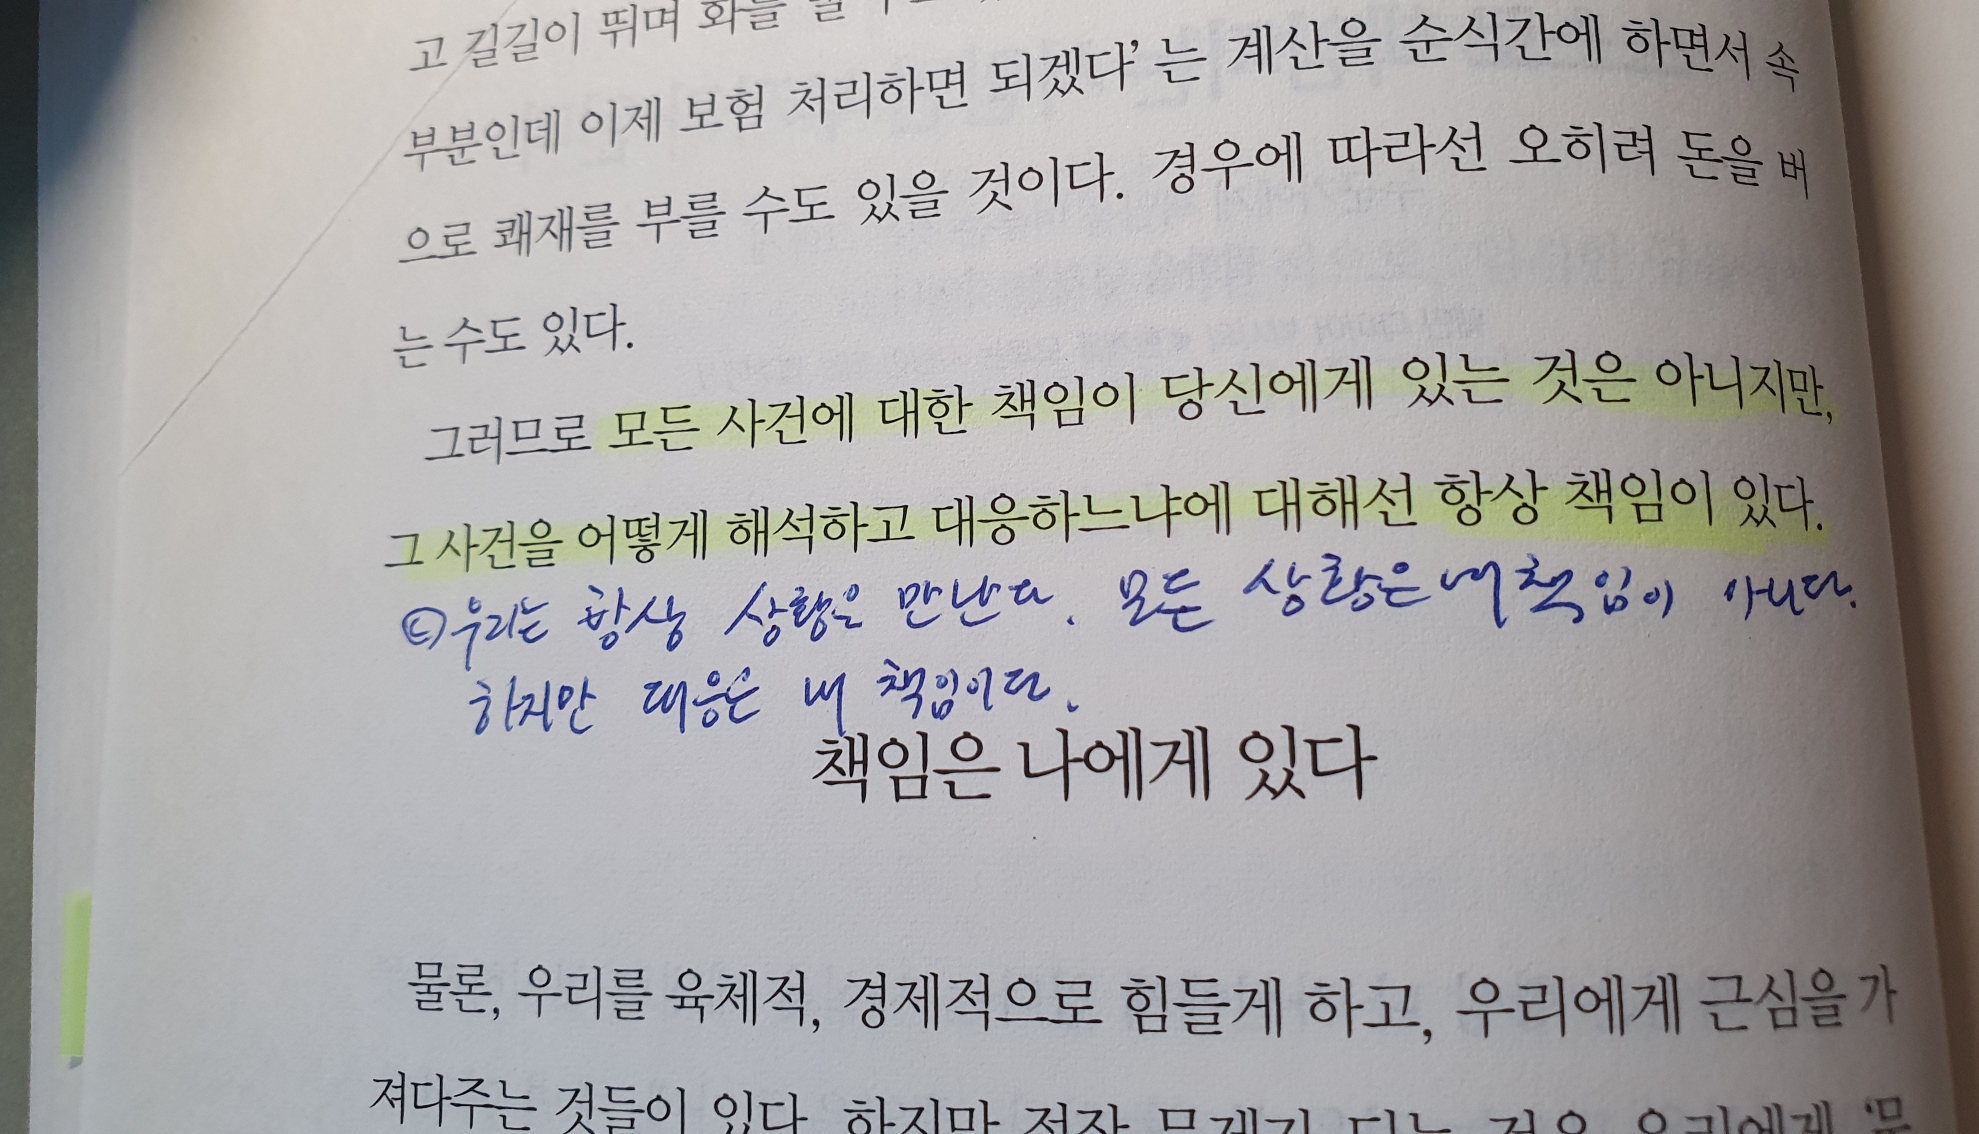 고 길길이 뛰며 화를
부분인데 이제 보험 처리하면 되겠다’는 계산을 순식간에 하면서 속
으로 쾌재를 부를 수도 있을 것이다. 경우에 따라선 오히려 돈을 버
는 수도 있다.
그러므로 모든 사건에 대한 책임이 당신에게 있는 것은 아니지만,
그 사건을 어떻게 해석하고 대응하느냐에 대해선 항상 책임이 있다.
우리는 항상 상황을 만난다. 모든 상황은 내 책임이 아니다.
하지만 대응은 내 책임이다.
책임은 나에게 있다
물론, 우리를 육체적, 경제적으로 힘들게 하고, 우리에게 근심을 가
져다주는 것들이 있다. 하지만 정작 문제가 되는 것은 우리에게